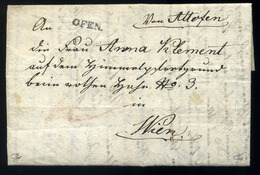 OFEN.
Von Altofen
An
die Frau Anna Klement
auf dem Himmelpfortgrund
beim rothen Hahn No. 3.
in
Wien